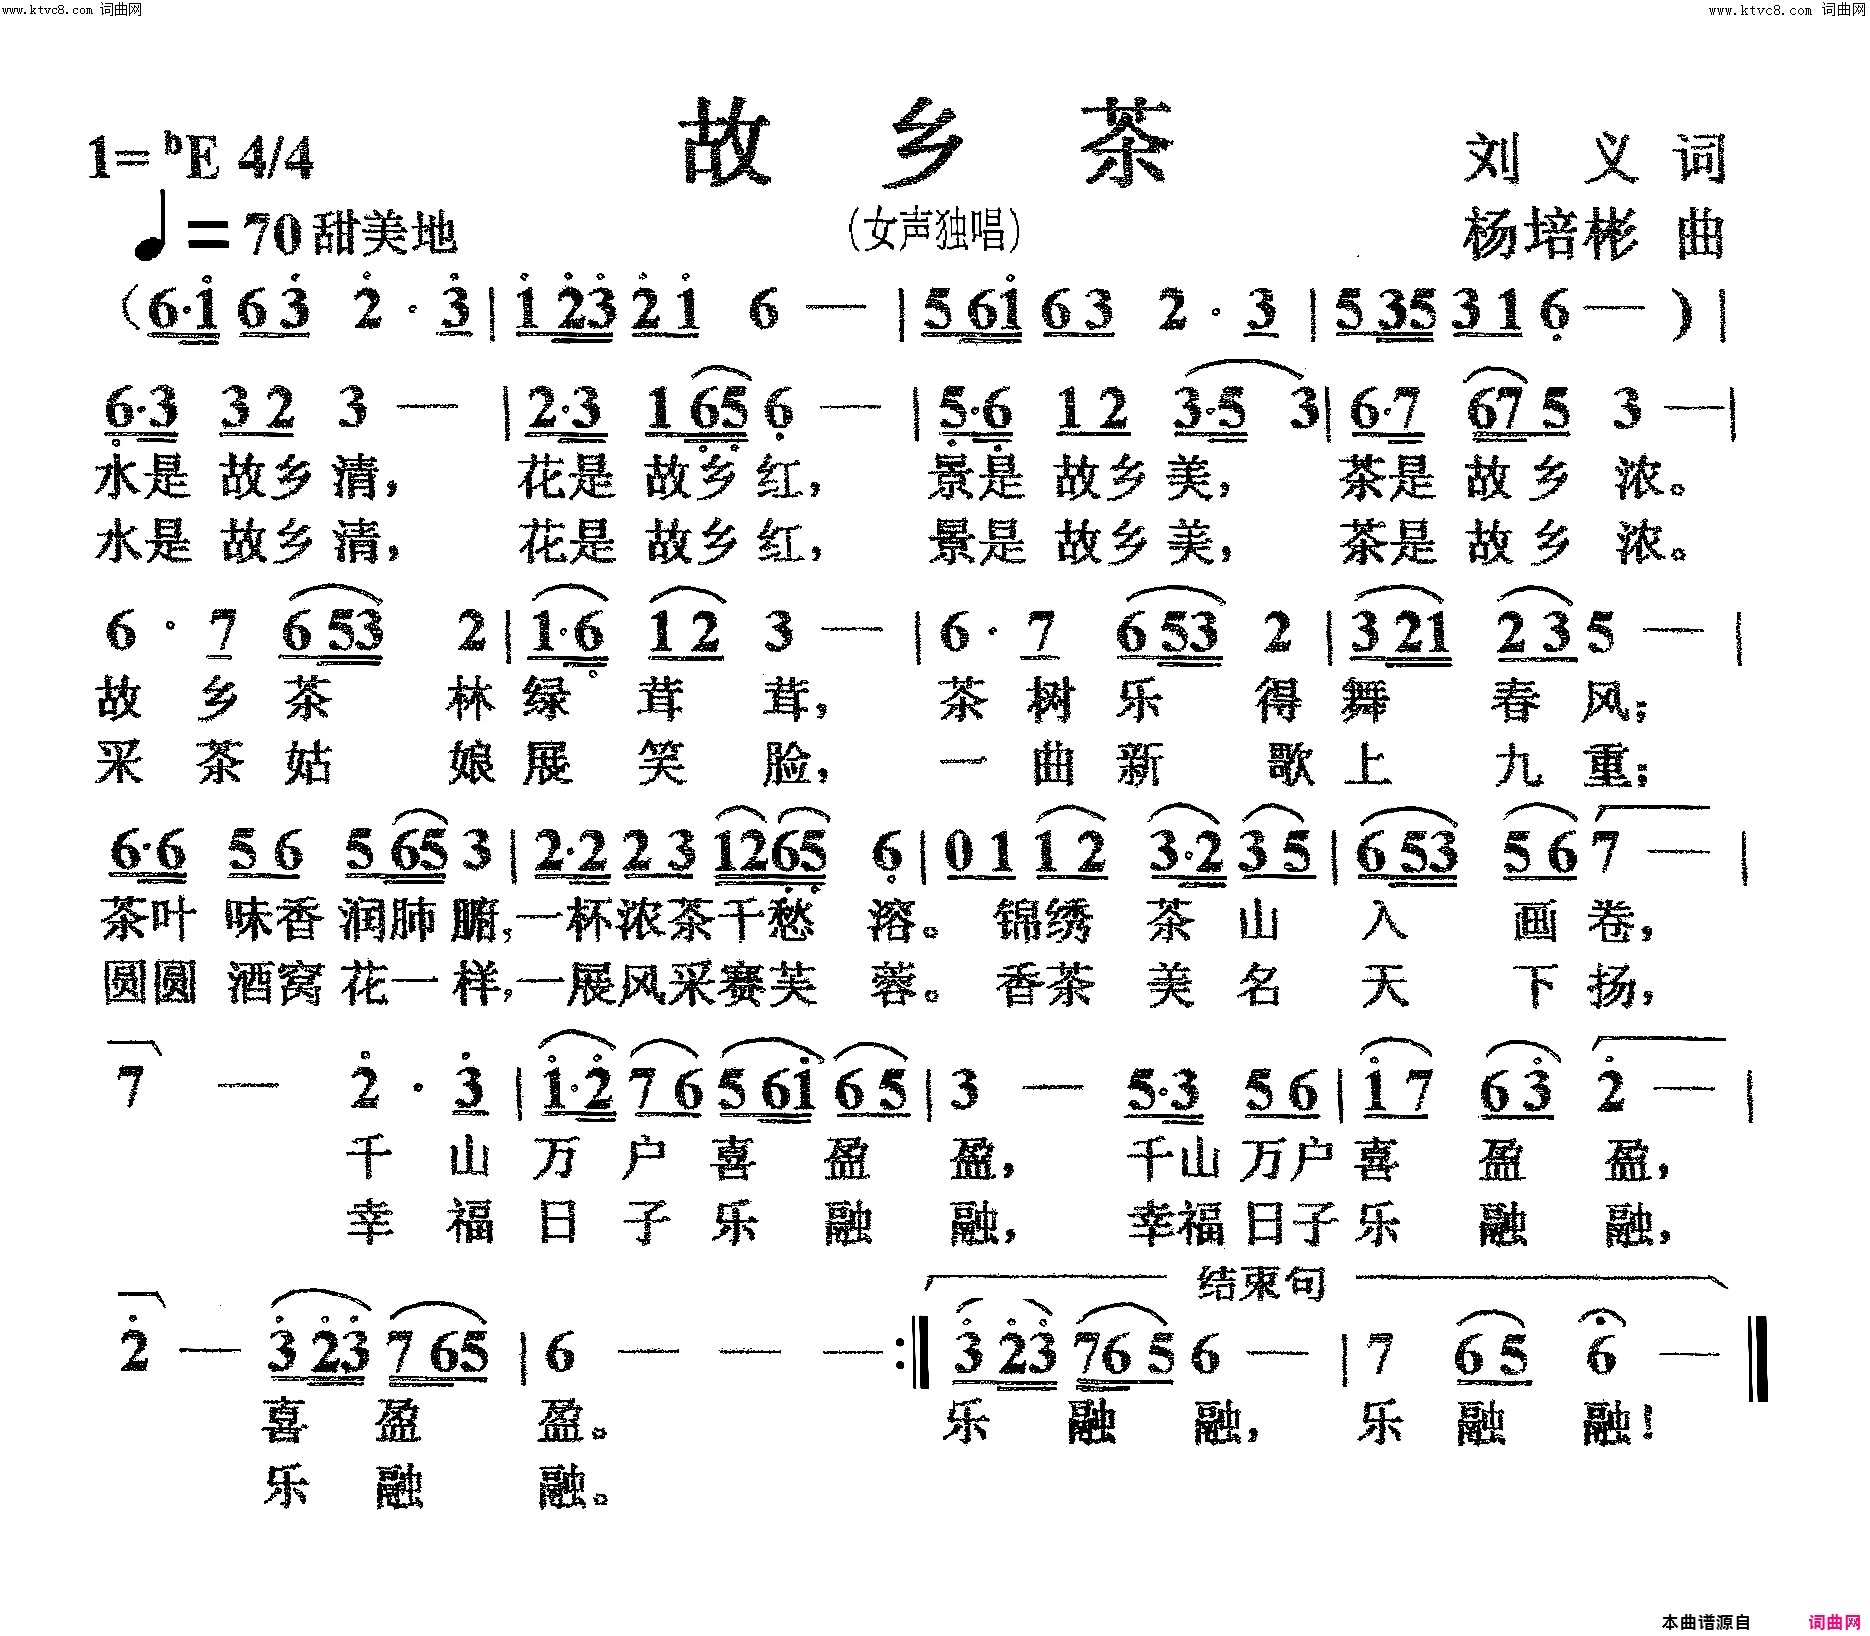 www.ktvc8.com 词曲网 www.ktvc8.com 词曲网
故乡茶
1=ᵇE 4/4 刘义词
♩=70 甜美地 (女声独唱) 杨培彬 曲
(6·i̇ 6 3̇ 2̇ · 3̇ | i̇ 2̇3̇ 2̇ i̇ 6 — | 5 6i̇ 6 3 2 · 3 | 5 35 3 1 6̣ — ) |
6̣·3 3 2 3 — | 2·3 1 6̣5̣ 6̣ — | 5̣·6̣ 1 2 3·5 3 | 6·7 67 5 3 — |
水是 故乡清, 花是 故乡红, 景是 故乡美, 茶是 故乡 浓。
水是 故乡清, 花是 故乡红, 景是 故乡美, 茶是 故乡 浓。
6 · 7 6 53 2 | 1·6̣ 1 2 3 — | 6 · 7 6 53 2 | 3 21 2 3 5 — |
故 乡 茶 林 绿 茸 茸, 茶 树 乐 得 舞 春 风;
采 茶 姑 娘 展 笑 脸, 一 曲 新 歌 上 九 重;
6·6 5 6 5 65 3 | 2·2 2 3 126̣5̣ 6̣ | 0 1 1 2 3·2 3 5 | 6 53 5 6 7 — |
茶叶 味香 润肺腑,一杯浓茶千愁 溶。 锦绣 茶 山 入 画 卷,
圆圆 酒窝 花一样,一展风采赛芙 蓉。 香茶 美 名 天 下 扬,
7 — 2̇ · 3̇ | i̇·2̇ 7 6 5 6i̇ 6 5 | 3 — 5·3 5 6 | i̇ 7 6 3̇ 2̇ — |
千 山 万 户 喜 盈 盈, 千山 万户 喜 盈 盈,
幸 福 日 子 乐 融 融, 幸福 日子 乐 融 融,
结束句
2̇ — 3̇ 2̇3̇ 7 65 | 6 — — — :‖ 3̇ 2̇3̇ 76 5 6 — | 7 6 5 6 — ‖
喜 盈 盈。 乐 融 融, 乐 融 融!
乐 融 融。
本曲谱源自 词曲网